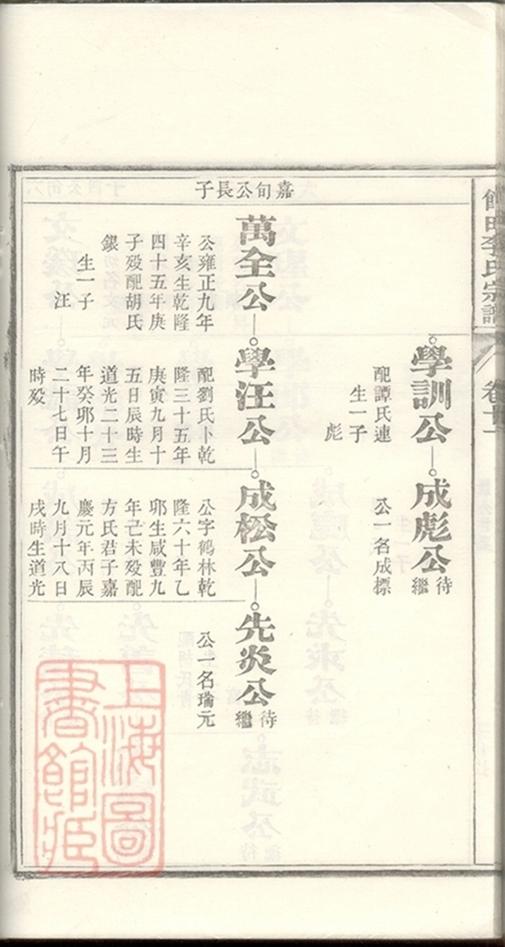 李氏宗譜
學訓公
配譚氏連
生一子
彪
成彪公
待繼
公一名成標
嘉旬公長子
萬全公
公雍正九年
辛亥生乾隆
四十五年庚
子歿配胡氏
銀
生一子
汪
學汪公
配劉氏卜乾
隆三十五年
庚寅九月十
五日辰時生
道光二十三
年癸卯十月
二十七日午
時歿
成松公
公字鶴林乾
隆六十年乙
卯生咸豐九
年己未歿配
方氏君子嘉
慶元年丙辰
九月十八日
戌時生道光
先炎公
待繼
公一名瑞元
上海圖
書館藏